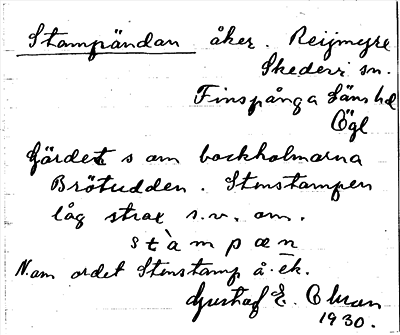 Stampändan åker. Reijmyre
Skedevi sn.
Finspånga läns hd
Ögl
Gärdet s om bockholmarna
Brötudden. Stenstampen
låg strax s.v. om.
stàmpæn
N. om ordet Stenstamp å. ek.
Gustaf E. Ohman
1930.